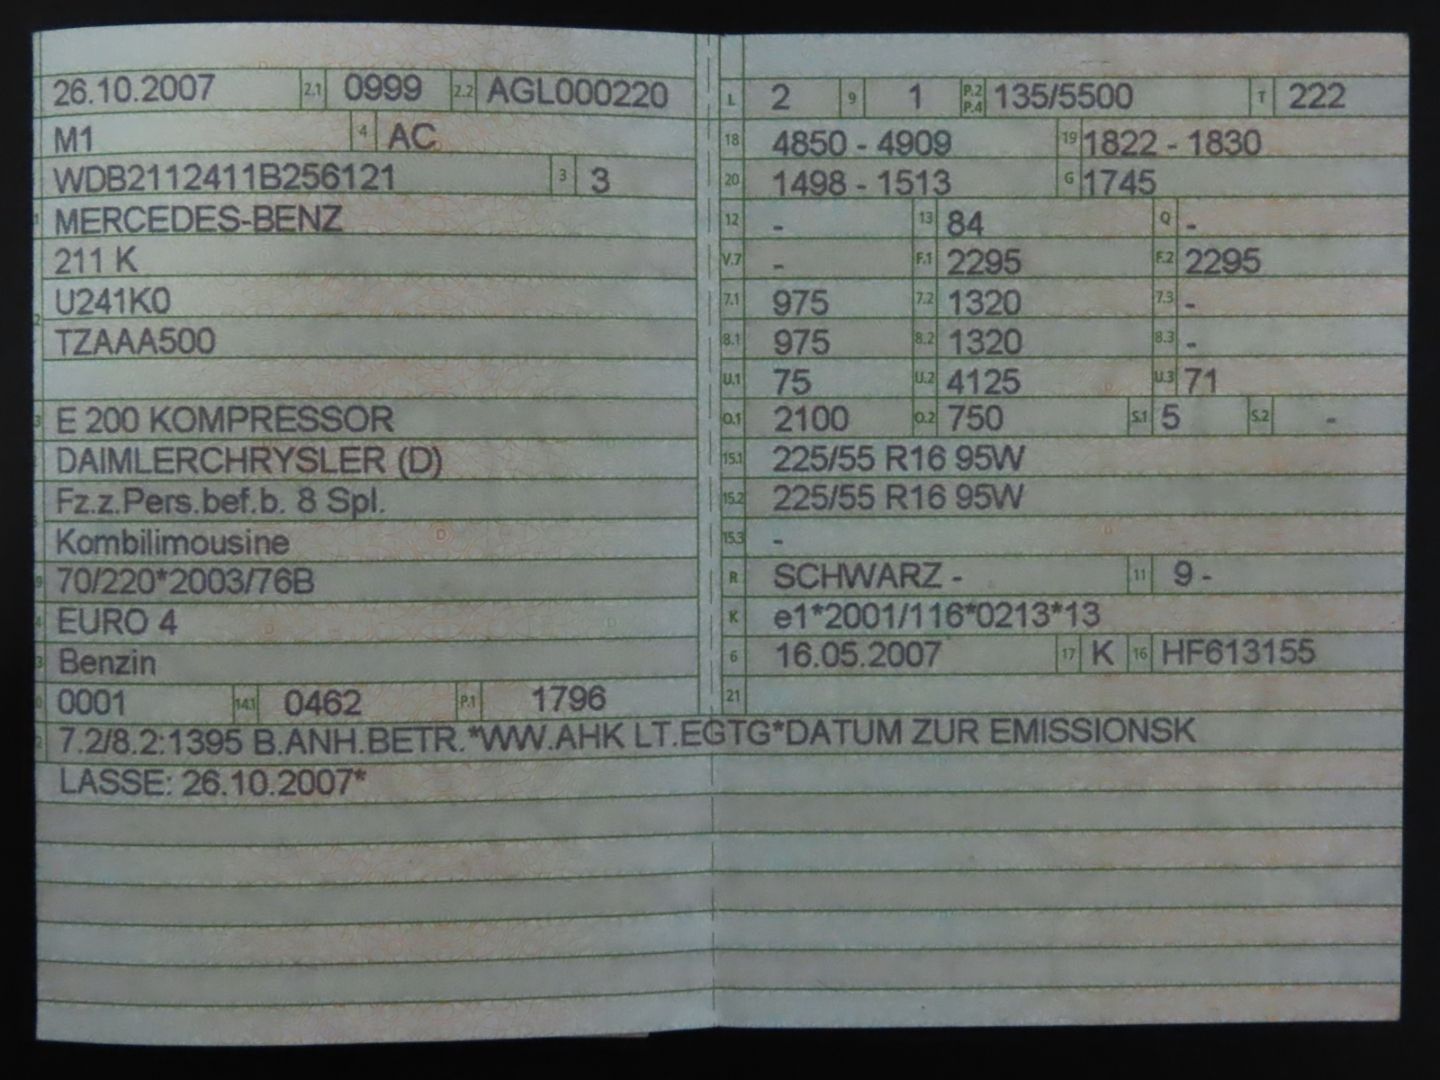 26.10.2007 2.1 0999 2.2 AGL000220
M1 4 AC
WDB2112411B256121 3 3
MERCEDES-BENZ
211 K
U241K0
TZAAA500
E 200 KOMPRESSOR
DAIMLERCHRYSLER (D)
Fz.z.Pers.bef.b. 8 Spl.
Kombilimousine
70/220*2003/76B
EURO 4
Benzin
0001 14.1 0462 P.1 1796
L 2 9 1 P.2 P.4 135/5500 T 222
18 4850 - 4909 19 1822 - 1830
20 1498 - 1513 G 1745
12 - 13 84 Q -
V.7 - F.1 2295 F.2 2295
7.1 975 7.2 1320 7.3 -
8.1 975 8.2 1320 8.3 -
U.1 75 U.2 4125 U.3 71
O.1 2100 O.2 750 S.1 5 S.2 -
15.1 225/55 R16 95W
15.2 225/55 R16 95W
15.3 -
R SCHWARZ - 11 9 -
K e1*2001/116*0213*13
6 16.05.2007 17 K 16 HF613155
21
7.2/8.2:1395 B.ANH.BETR.*WW.AHK LT.EGTG*DATUM ZUR EMISSIONSK
LASSE: 26.10.2007*